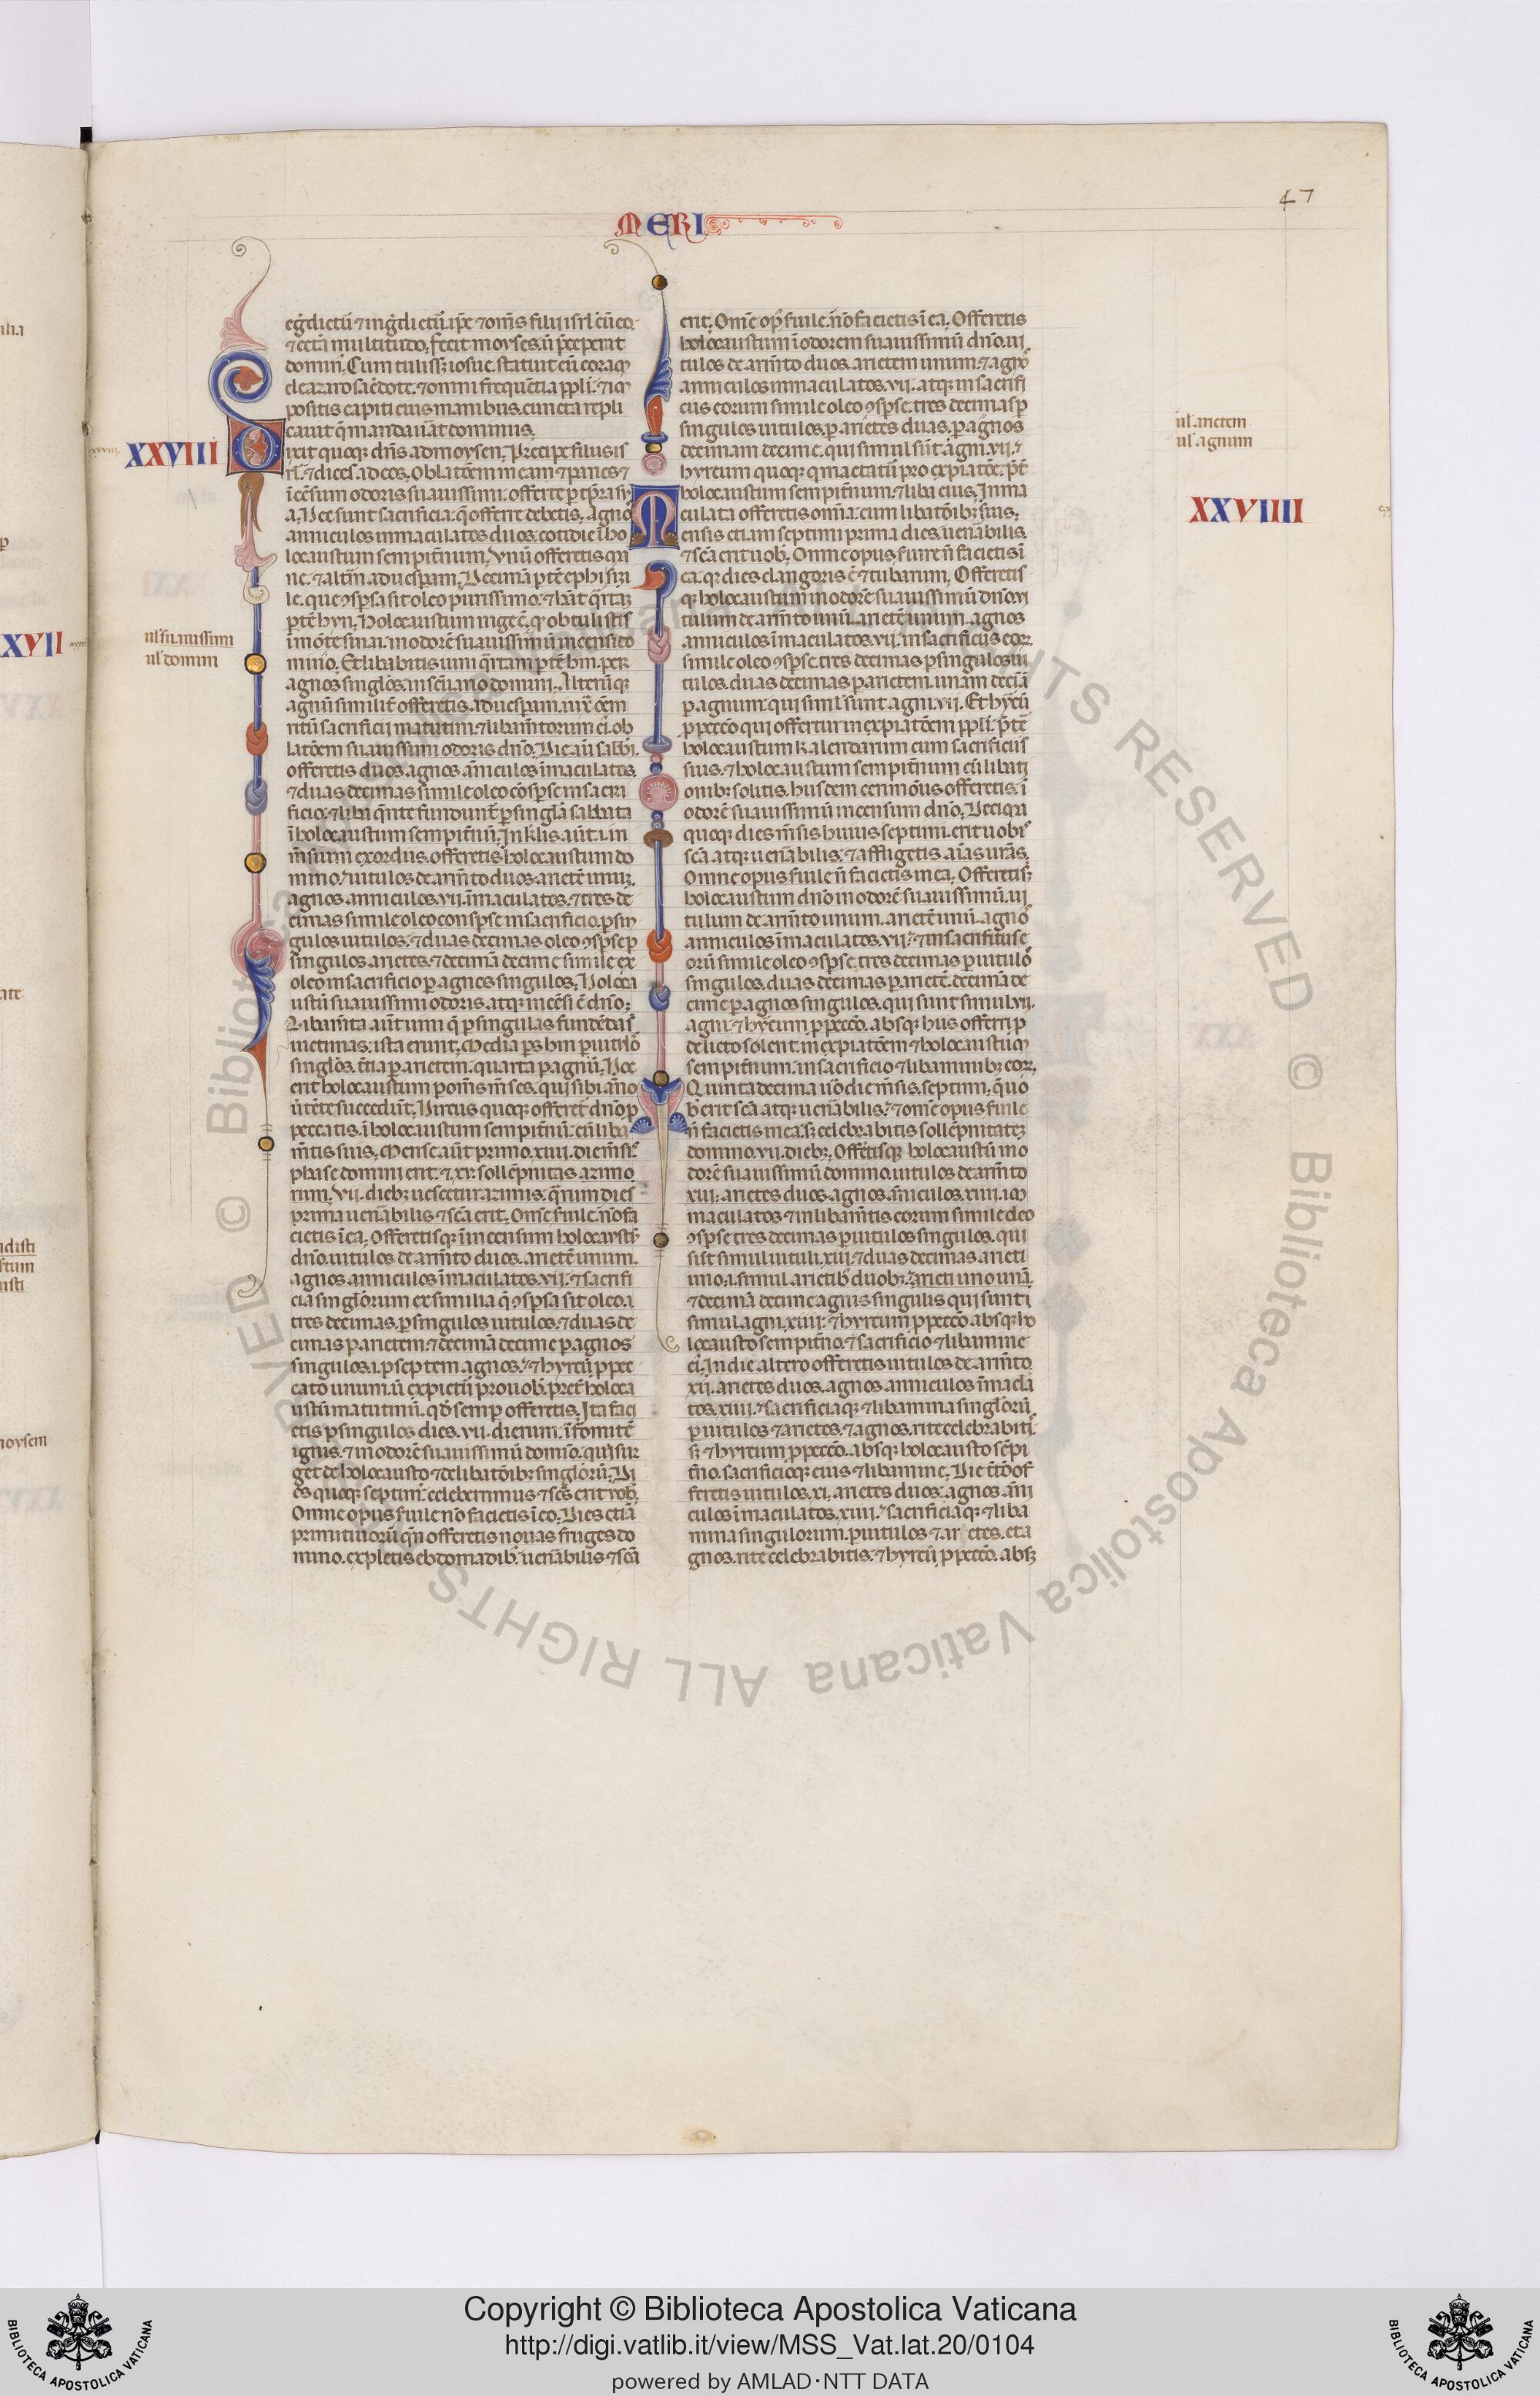 47
MERI
egd̄ietū ⁊ ingd̄ietū. ip̄e ⁊ om̄s filii isrl̄ cū eo.
⁊ cet̄a multitudo. fecit moyses. ū p̄ceperat
domin̄. Cum tuliss; iosue. statuit eū coram
eleazaro sac̄dote. ⁊ omni frequētia ppl̄i. ⁊ im
positis capiti eius manibus. cuncta repli
cauit q̄ mandauāt dominus.
XXVIII
Dixit quoq; dn̄s ad moysen. Precipe filiis is
rl̄. ⁊ dices ad eos. Oblatōem meam ⁊ panes ⁊
īcēsum odoris suauissimi. offerte p tp̄ra su
a. Hec sunt sacrificia. q̄ offerre debetis. agnos
anniculos immaculatos duos. cotidie ī ho
locaustum sempit̄num. Vnū offeretis ma
ne. ⁊ alt̄m ad uesp̄am. Decimā p̄tē ephi simi
le. que 9sp̄sa sit oleo purissimo. ⁊ hāt q̄rtaz
p̄tē hyn. Holocaustum iuge ē. q̄ obtulistis
ī mōte sinai. in odorē suauissimū incensi do
ul' suauissimi
ul' domini
mino. Et libabitis uini q̄rtam p̄tē hin. per
agnos singlōs. in scūario domini. Alterūq;
agnū similit̄ offeretis. ad uesp̄am. iux̄ oēm
ritū sacrificij matutini. ⁊ libam̄torum ei. ob
latōem suauissimi odoris dn̄o. Die aū sabbī.
offeretis duos agnos ān̄iculos īmaculatos.
⁊ duas decimas simile oleo cōsp̄se in sacri
ficio. ⁊ liba q̄ rite fundunt̄ p singl̄a sabbata
ī holocaustum sempit̄nū. In kl̄is aūt. i. in
m̄sium exordiis. offeretis holocaustum do
mino. uitulos de arm̄to duos. arietē unuz.
agnos anniculos. vii. īmaculatos. ⁊ tres de
cimas simile oleo consp̄se in sacrificio. p sin
gulos uitulos. ⁊ duas decimas oleo 9sp̄se p
singulos arietes. ⁊ decimā decime simile ex
oleo in sacrificio. p agnos singulos. Holoca
ustū suauissimi odoris. atq; incēsi ē dn̄o.
Libam̄ta aūt uini q̄ p singulas fundēda s̄
uictimas. ista erunt. Media pars hin p uitl̄o
singlōs. t̄tia p arietem. quarta p agnū. Hoc
erit holocaustum p om̄s m̄ses. qui sibi āno
ūtēte succedūt. Hircus quoq; offeret̄ dn̄o. p
peccatis. ī holocaustum sempit̄nū. cū liba
m̄tis suis. Mense aūt primo. xiiii. die m̄sis.
phase domini erit. ⁊ xv. sollēpnitas. azimo
rum. Vii. dieb; uescetur azimis. q̄rum dies
prima uenābilis ⁊ sc̄a erit. Om̄e s̄uile. nō fa
cietis ī ea. Offeretisq; ī incensum holocaust̄.
dn̄o. uitulos de arm̄to duos. arietē unum.
agnos anniculos īmaculatos. vii. ⁊ sacrifi
cia singlōrum ex similia q̄ 9sp̄sa sit oleo. i.
tres decimas. p singulos uitulos. ⁊ duas de
cimas p arietem. ⁊ decimā decime p agnos
singulos. i. p septem agnos. ⁊ hyrcū p pec
cato unum. ū expietū pro uob̄. pret̄ holoca
ustū matutinū. qd̄ semp offeretis. Ita faci
etis p singulos dies. vii. dierum. ī fomitē
ignis. ⁊ in odorē suauissimū domīo. qui sur
get de holocausto ⁊ de libatōib; singlōrū. Di
es quoq; septim̄. celeberrimus ⁊ sc̄s erit vob̄.
Omne opus s̄uile nō facietis ī eo. Dies etiā
primitiuorū q̄n offeretis nouas fruges do
mino. expletis ebdomadib̄. uenābilis ⁊ sc̄a
erit. Om̄e op̄ s̄uile. nō facietis ī ea. Offeretis
holocaustum ī odorem suauissimū dn̄o. ui
tulos de arm̄to duos. arietem unum. ⁊ agnō
anniculos immaculatos. vii. atq; in sacrifi
ciis eorum simile oleo 9sp̄se. tres decimas p
ul' arietem
ul' agnum
singulos uitulos. p arietes duas. p agnos
decimam decime. qui simul sūt agni. vii. ⁊
hyrcum quoq; q̄ mactatū pro expiatōe. pt̄
holocaustum sempit̄num. ⁊ liba eius. Inma
culata offeretis om̄ia. cum libatōib; suis.
XXVIIII
Mensis etiam septimi prima dies. uenābilis.
⁊ sc̄a erit uob̄. Omne opus s̄uire n̄ facietis ī
ea. q; dies clangoris ē ⁊ tubarum. Offeretis
q; holocaustum in odorē suauissimū dn̄o. vi
tulum de arm̄to unū. arietē unum. agnos
anniculos īmaculatos. vii. in sacrificiis eor.
simile oleo 9sp̄se. tres decimas p singulos ui
tulos. duas decimas p arietem. unam deciā
p agnum. qui siml̄ sunt agni. vii. Et hyrcū
p peccō qui offertur in expiatōem ppl̄i. p̄tē
holocaustum kalendarum cum sacrificiis
suis. ⁊ holocaustum sempit̄num. cū libati
onib; solitis. hiisdem cerimōiis offeretis. ī
odorē suauissimū incensum dn̄o. Decima
quoq; dies m̄sis huius septimi. erit uobis
sc̄a atq; uenābilis. ⁊ affligetis aīas urās.
Omne opus s̄uile n̄ facietis in ea. Offeretis;
holocaustum dn̄o in odorē suauissimū. ui
tulum de arm̄to unum. arietē unū. agnō
anniculos īmaculatos. vii. ⁊ in sacrifitiis e
orū simile oleo 9sp̄se. tres decimas p uitulō
singulos. duas decimas p arietē. decimā de
cime p agnos singulos. qui sunt simul vii.
agni. ⁊ hyrcum p peccō. absq; hiis offerri p
delicto solent. in expiatōem ⁊ holocaustum
sempit̄num. in sacrificio ⁊ libaminib; eor.
Quintadecima uō die m̄sis. septimi. q̄ uo
b̄ erit sc̄a atq; uenābilis. ⁊ om̄e opus s̄uile
n̄ facietis in ea. s; celebrabitis sollēpnitatez
domino. vii. dieb;. Off̄etisq; holocaustū in o
dorē suauissimū domino. uitulos de arm̄to
xiii. arietes duos. agnos ān̄iculos. xiiii. im
maculatos ⁊ in libam̄tis eorum simile oleo
9sp̄se tres decimas p uitulos singulos. qui
sūt simul uituli. xiii. ⁊ duas decimas. arieti
uno. i. simul arietib̄ duob;. arieti uno unā.
⁊ decimā decime agnis singulis qui sunt i
simul agni. xiiii. ⁊ hyrcum p peccō. absq; ho
locausto sempit̄no. ⁊ sacrificio ⁊ libamine
ei. In die altero offeretis uitulos de arm̄to
xii. arietes duos. agnos anniculos īmacla
tos. xiiii. ⁊ sacrificiaq; ⁊ libamina singlōrū.
p uitulos ⁊ arietes. ⁊ agnos. rite celebrabiti.
s; ⁊ hyrcum p peccō. absq; holocausto sēpi
t̄no. sacrificioq; eius ⁊ libamine. Die t̄tio of
feretis uitulos. xi. arietes duos. agnos āni
culos īmaculatos. xiiii. ⁊ sacrificiaq; ⁊ liba
mina singulorum. p uitulos ⁊ ar etes. et a
gnos. rite celebrabitis. ⁊ hyrcū p peccō. abs;
XVII
© Biblioteca Apostolica Vaticana ALL RIGHTS RESERVED
Copyright © Biblioteca Apostolica Vaticana
http://digi.vatlib.it/view/MSS_Vat.lat.20/0104
powered by AMLAD·NTT DATA
BIBLIOTECA APOSTOLICA VATICANA
BIBLIOTECA APOSTOLICA VATICANA